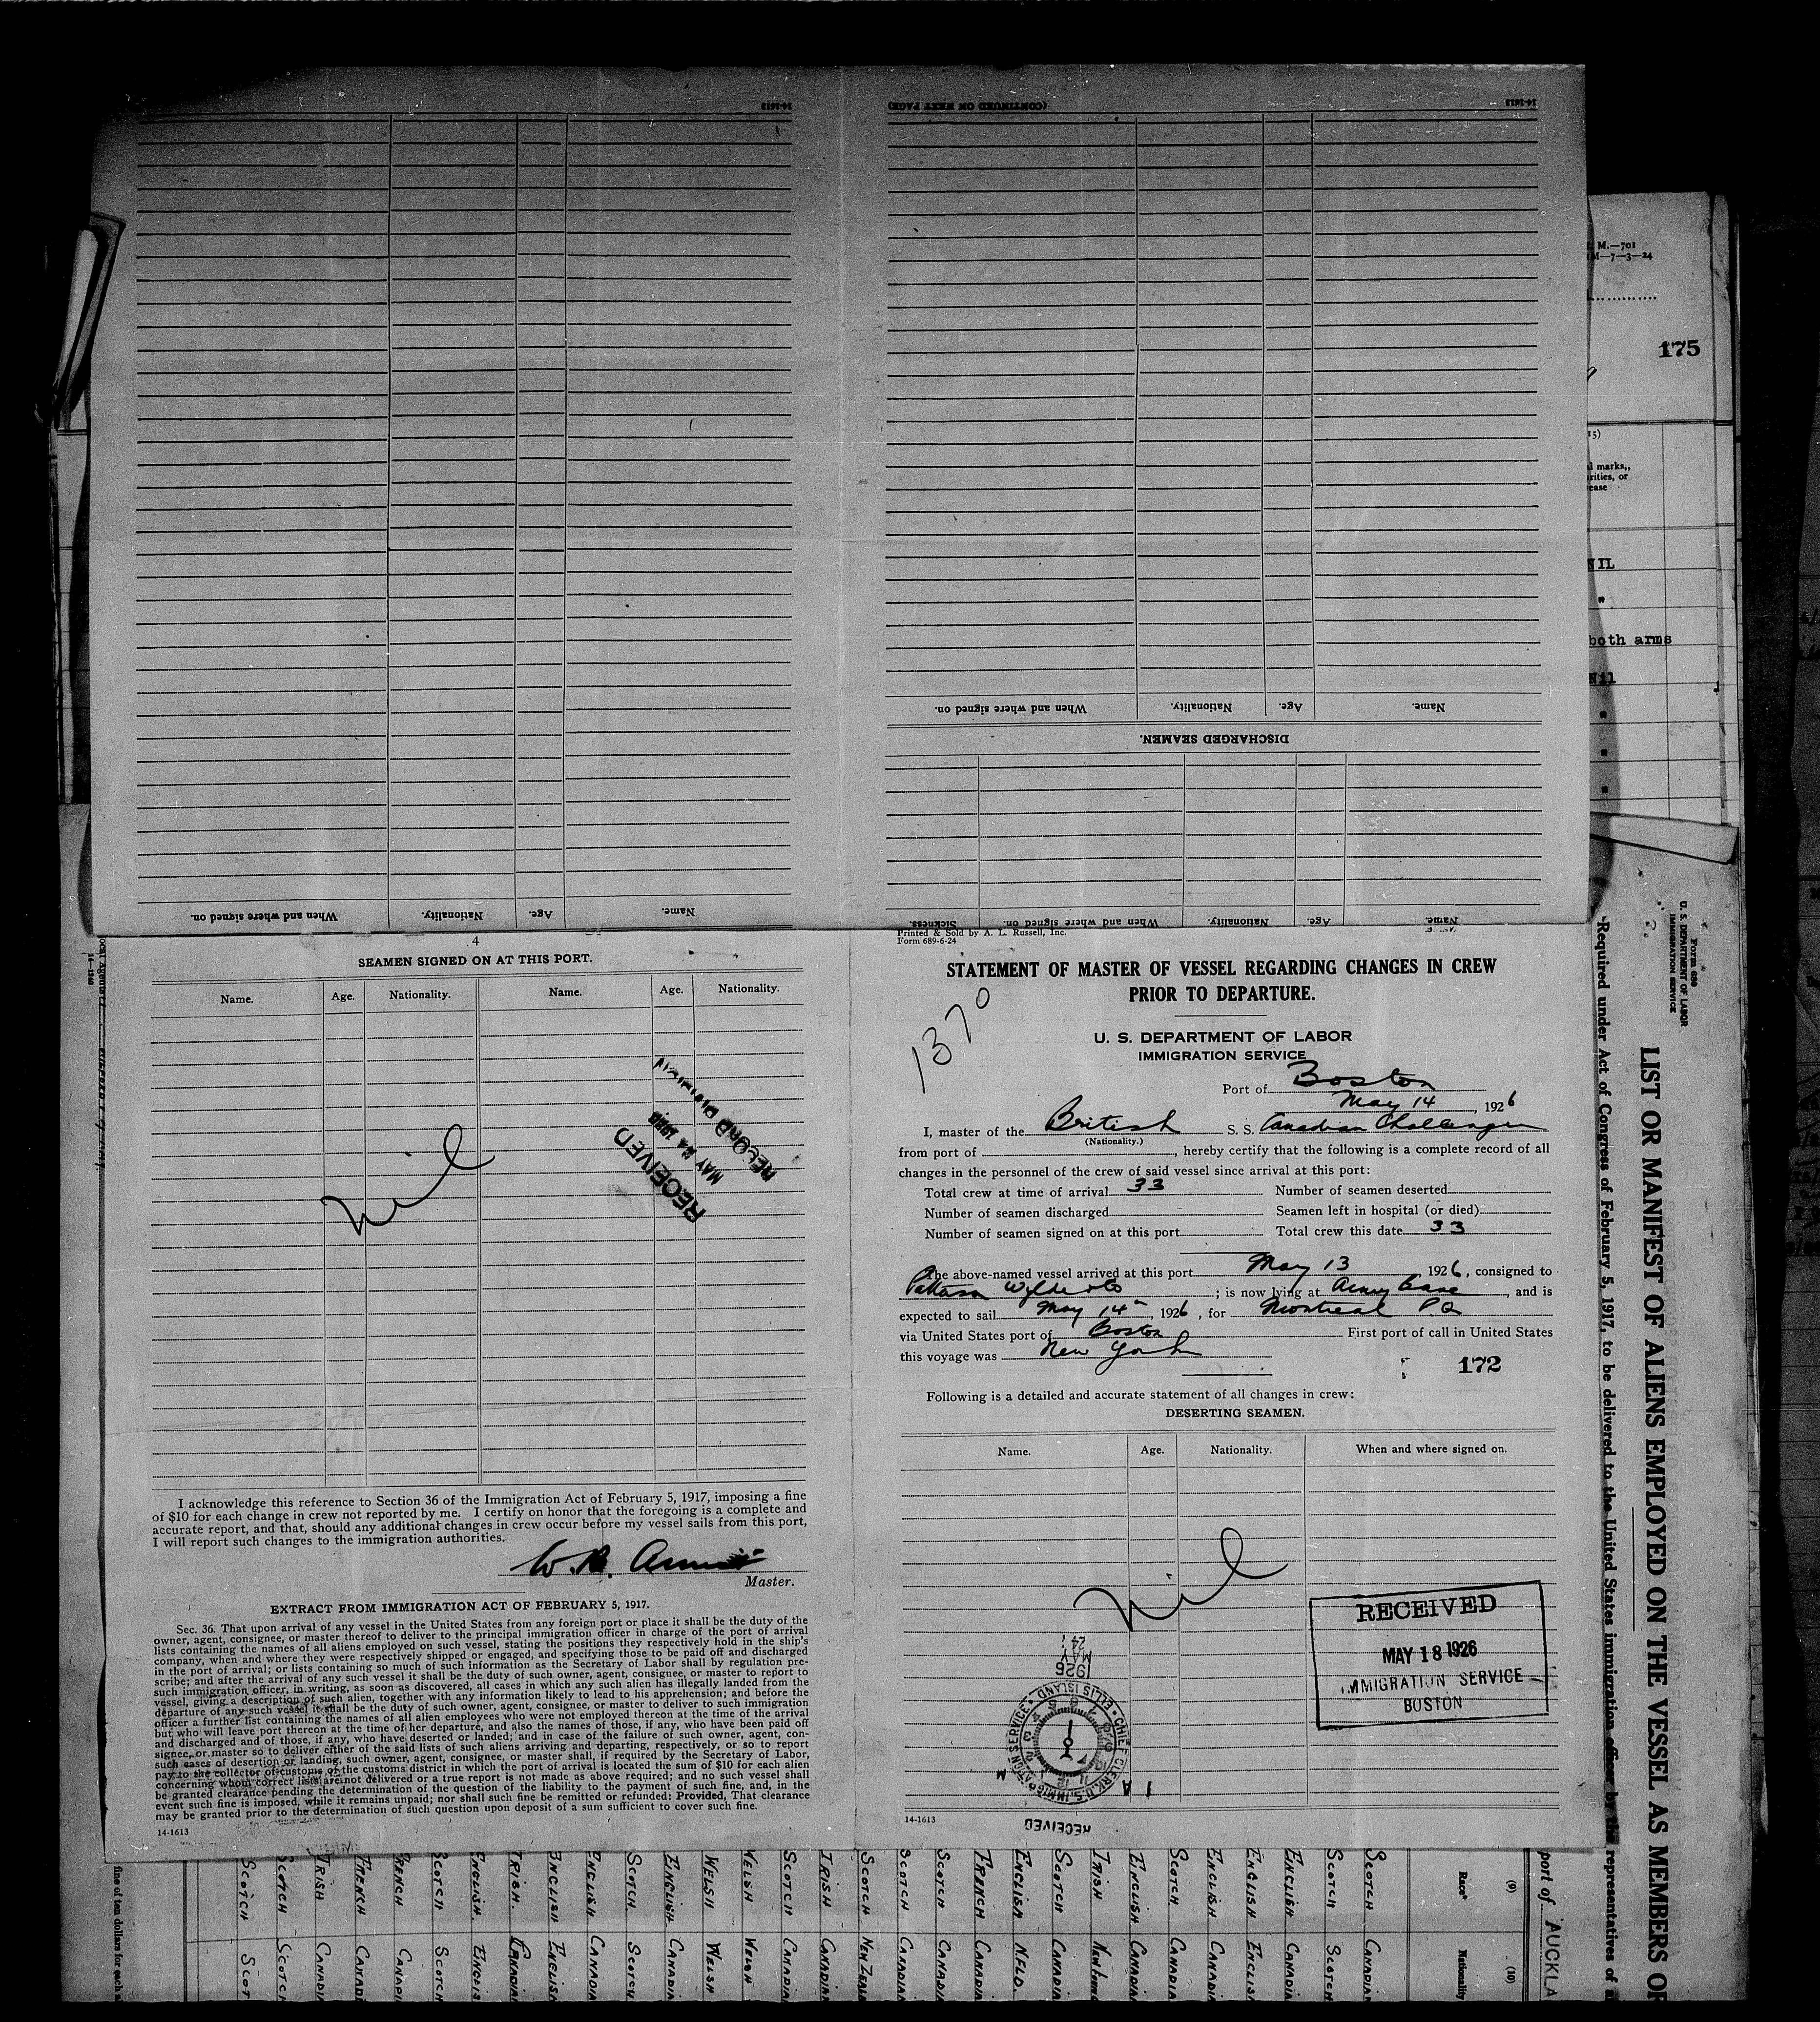 14-1613
(CONTINUED ON NEXT PAGE)
14-1613
Name.
Age.
Nationality.
When and where signed on.
DISCHARGED SEAMEN.
Name.
Age.
Nationality.
When and where signed on.
Sickness.
Name.
Age.
Nationality.
When and where signed on.
M.—701
M—7—3—24
175
15)
marks,
ease
NIL
"
both arms
Nil
"
"
"
4
SEAMEN SIGNED ON AT THIS PORT.
Name. Age. Nationality. Name. Age. Nationality.
RECEIVED
MAY 24 1926
RECORD DIVISION
Nil
I acknowledge this reference to Section 36 of the Immigration Act of February 5, 1917, imposing a fine
of $10 for each change in crew not reported by me. I certify on honor that the foregoing is a complete and
accurate report, and that, should any additional changes in crew occur before my vessel sails from this port,
I will report such changes to the immigration authorities.
Master.
EXTRACT FROM IMMIGRATION ACT OF FEBRUARY 5, 1917.
Sec. 36. That upon arrival of any vessel in the United States from any foreign port or place it shall be the duty of the
owner, agent, consignee, or master thereof to deliver to the principal immigration officer in charge of the port of arrival
lists containing the names of all aliens employed on such vessel, stating the positions they respectively hold in the ship's
company, when and where they were respectively shipped or engaged, and specifying those to be paid off and discharged
in the port of arrival; or lists containing so much of such information as the Secretary of Labor shall by regulation pre-
scribe; and after the arrival of any such vessel it shall be the duty of such owner, agent, consignee, or master to report to
such immigration officer, in writing, as soon as discovered, all cases in which any such alien has illegally landed from the
vessel, giving a description of such alien, together with any information likely to lead to his apprehension; and before the
departure of any such vessel it shall be the duty of such owner, agent, consignee, or master to deliver to such immigration
officer a further list containing the names of all alien employees who were not employed thereon at the time of the arrival
but who will leave port thereon at the time of her departure, and also the names of those, if any, who have been paid off
and discharged and of those, if any, who have deserted or landed; and in case of the failure of such owner, agent, con-
signee, or master so to deliver either of the said lists of such aliens arriving and departing, respectively, or so to report
such cases of desertion or landing, such owner, agent, consignee, or master shall, if required by the Secretary of Labor,
pay to the collector of customs of the customs district in which the port of arrival is located the sum of $10 for each alien
concerning whom correct lists are not delivered or a true report is not made as above required; and no such vessel shall
be granted clearance pending the determination of the question of the liability to the payment of such fine, and, in the
event such fine is imposed, while it remains unpaid; nor shall such fine be remitted or refunded: Provided, That clearance
may be granted prior to the determination of such question upon deposit of a sum sufficient to cover such fine.
14-1613
Printed & Sold by A. L. Russell, Inc.
Form 689-6-24
STATEMENT OF MASTER OF VESSEL REGARDING CHANGES IN CREW
PRIOR TO DEPARTURE.
1370
U. S. DEPARTMENT OF LABOR
IMMIGRATION SERVICE
Port of Boston
May 14, 1926
I, master of the British S. S. Canadian Challenger
(Nationality.)
from port of , hereby certify that the following is a complete record of all
changes in the personnel of the crew of said vessel since arrival at this port:
Total crew at time of arrival 33 Number of seamen deserted
Number of seamen discharged Seamen left in hospital (or died)
Number of seamen signed on at this port Total crew this date 33
The above-named vessel arrived at this port May 13 1926, consigned to
Wylde ; is now lying at Army Base, and is
expected to sail May 14, 1926, for Montreal PQ
via United States port of Boston First port of call in United States
this voyage was New York
172
Following is a detailed and accurate statement of all changes in crew:
DESERTING SEAMEN.
Name. Age. Nationality. When and where signed on.
Nil
RECEIVED
MAY 18 1926
IMMIGRATION SERVICE
BOSTON
1926
MAY 24
CHIEF CLERK, U.S. IMMIGRATION SERVICE ELLIS ISLAND
RECEIVED
14-1613
Form 689
U. S. DEPARTMENT OF LABOR
IMMIGRATION SERVICE
LIST OR MANIFEST OF ALIENS EMPLOYED ON THE VESSEL AS MEMBERS OF
Required under Act of Congress of February 5, 1917, to be delivered to the United States immigration officer by the representatives of
port of AUCKLA
(9) (10)
Race* Nationality
SCOTCH CANADIA
SCOTCH SCOTCH
ENGLISH CANADIA
ENGLISH ENGLISH
ENGLISH CANADIA
SCOTCH CANADIA
ENGLISH CANADIA
IRISH
SCOTCH CANADIA
ENGLISH NFLD.
FRENCH CANADIA
SCOTCH CANADIA
SCOTCH CANADIA
SCOTCH NEW ZEALA
IRISH CANADIA
SCOTCH CANADIA
WELSH WELSH
WELSH WELSH
ENGLISH CANADIA
SCOTCH SCOTCH
ENGLISH CANADIA
ENGLISH ENGLISH
IRISH CANADIA
ENGLISH ENGLIS
SCOTCH SCOTCH
FRENCH CANADI
FRENCH CANADI
IRISH CANADI
SCOTCH SCOTCH
SCOTCH SCOT
fine of ten dollars for each